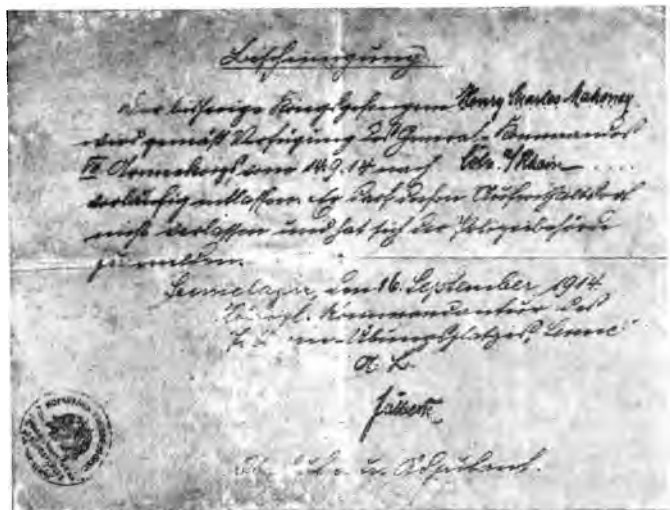 Bescheinigung.
Der bisherige Kriegsgefangene Henry Charles Mahoney
wird gemäß Verfügung des General-Kommandos
VII Armeekorps vom 14.9.14 nach Cöln a/Rhein
vorläufig entlassen. Er darf diesen Aufenthaltsort
nicht verlassen und hat sich der Polizeibehörde
zu melden.
Sennelager, den 16. September 1914.
Königl. Kommandantur des
Übungsplatzes, Senne
u. Adjutant.